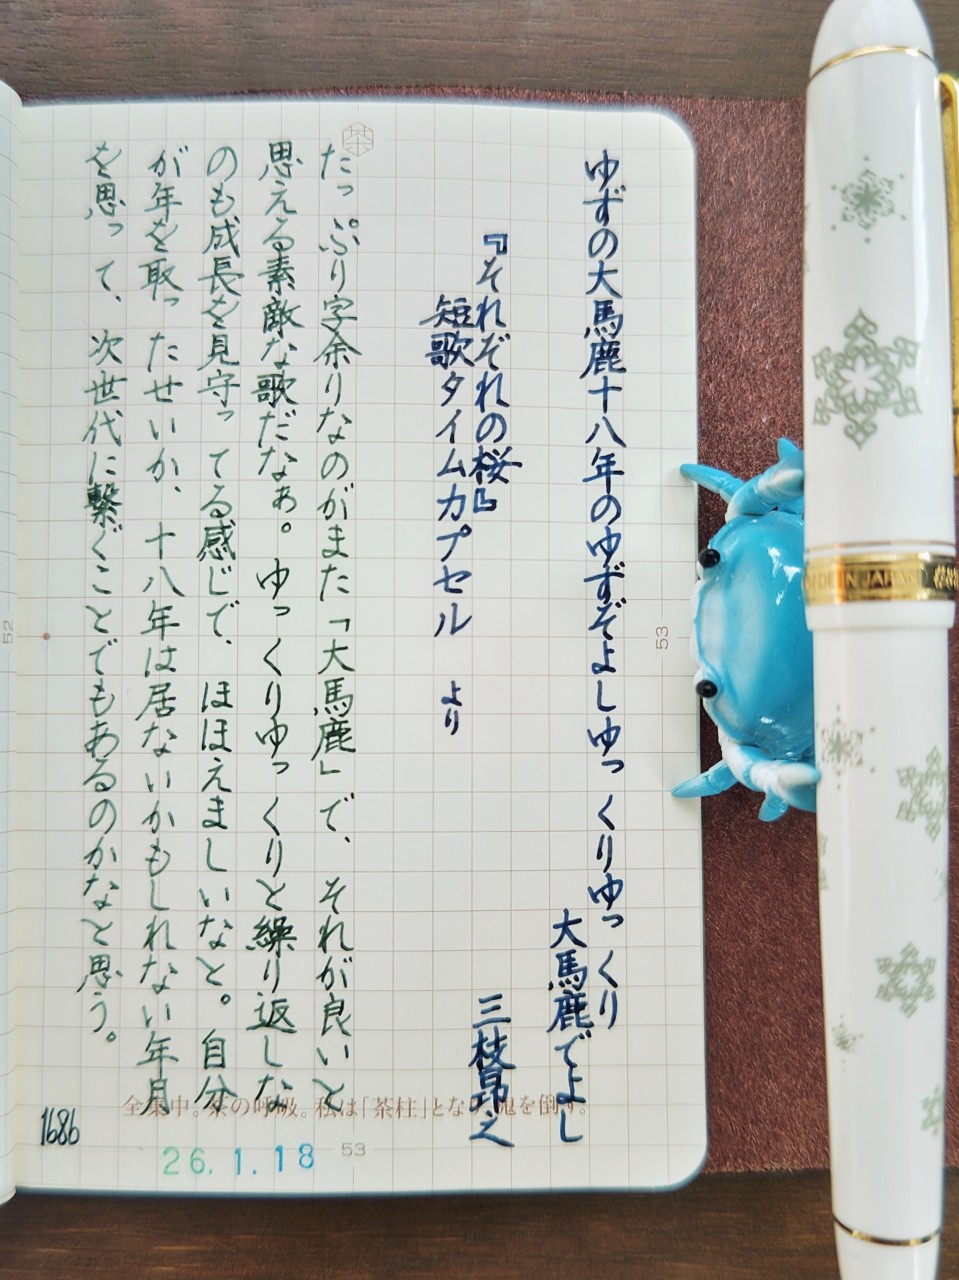 ゆずの大馬鹿十八年のゆずぞよしゆっくりゆっくり
大馬鹿でよし
『それぞれの桜』
三枝昻之
短歌タイムカプセル より
たっぷり字余りなのがまた「大馬鹿」で、それが良いと
思える素敵な歌だなぁ。ゆっくりゆっくりと繰り返しな
のも成長を見守ってる感じで、ほほえましいなと。自分
が年を取ったせいか、十八年は居ないかもしれない年月
を思って、次世代に繋ぐことでもあるのかなと思う。
全集中。茶の呼吸。私は「茶柱」となり鬼を倒す。
1686
26.1.18
53
53
52
茶
MADE IN JAPAN